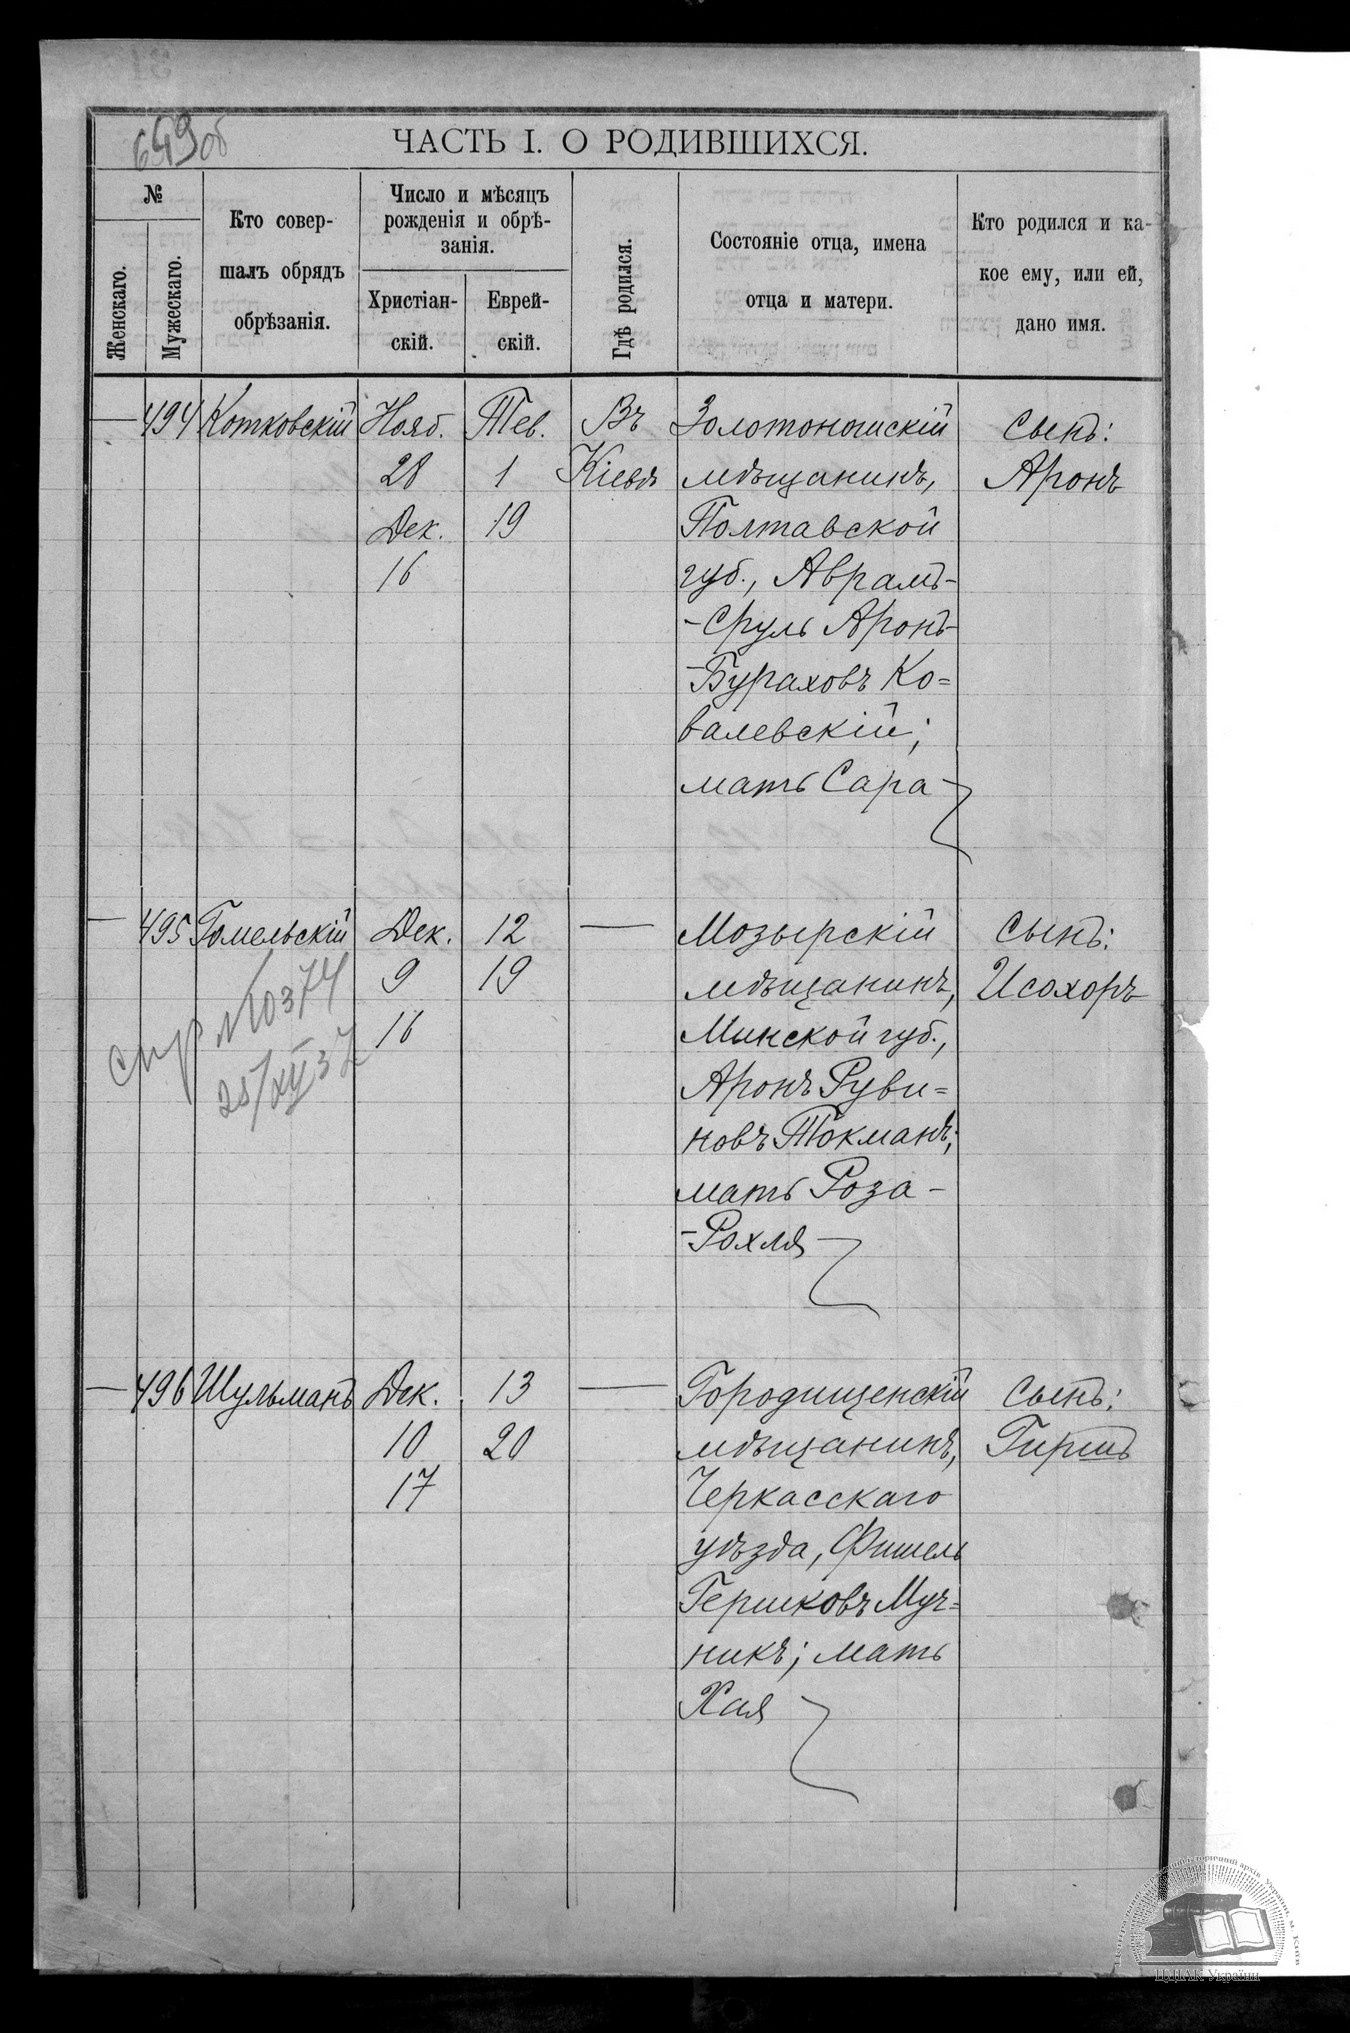 649 об
ЧАСТЬ I. О РОДИВШИХСЯ.
№
Женскаго.
Мужескаго.
Кто совер-
шалъ обрядъ
обрѣзанія.
Число и мѣсяцъ
рожденія и обрѣ-
занія.
Христіан-
скій.
Еврей-
скій.
Гдѣ родился.
Состояніе отца, имена
отца и матери.
Кто родился и ка-
кое ему, или ей,
дано имя.
— 494 Котковскій Нояб. Тев. Въ Золотоношскій Сынъ:
28 1 Кіевѣ мѣщанинъ, Аронъ
Дек. 19 Полтавской
16 губ., Аврамъ-
-Сруль Аронъ-
-Бураховъ Ко=
валевскій;
мать Сара
— 495 Гомельскій Дек. 12 — Мозырскій Сынъ:
9 19 мѣщанинъ, Исохоръ
16 Минской губ.,
Аронъ Руви=
новъ Токманъ;
мать Роза-
-Рохля
спр № 10374
25/XII 37
— 496 Шульманъ Дек. 13 — Городищенскій Сынъ:
10 20 мѣщанинъ, Гиршъ
17 Черкасскаго
уѣзда, Фишель
Гершковъ Муч=
никъ; мать
Хая
ЦДІАК України